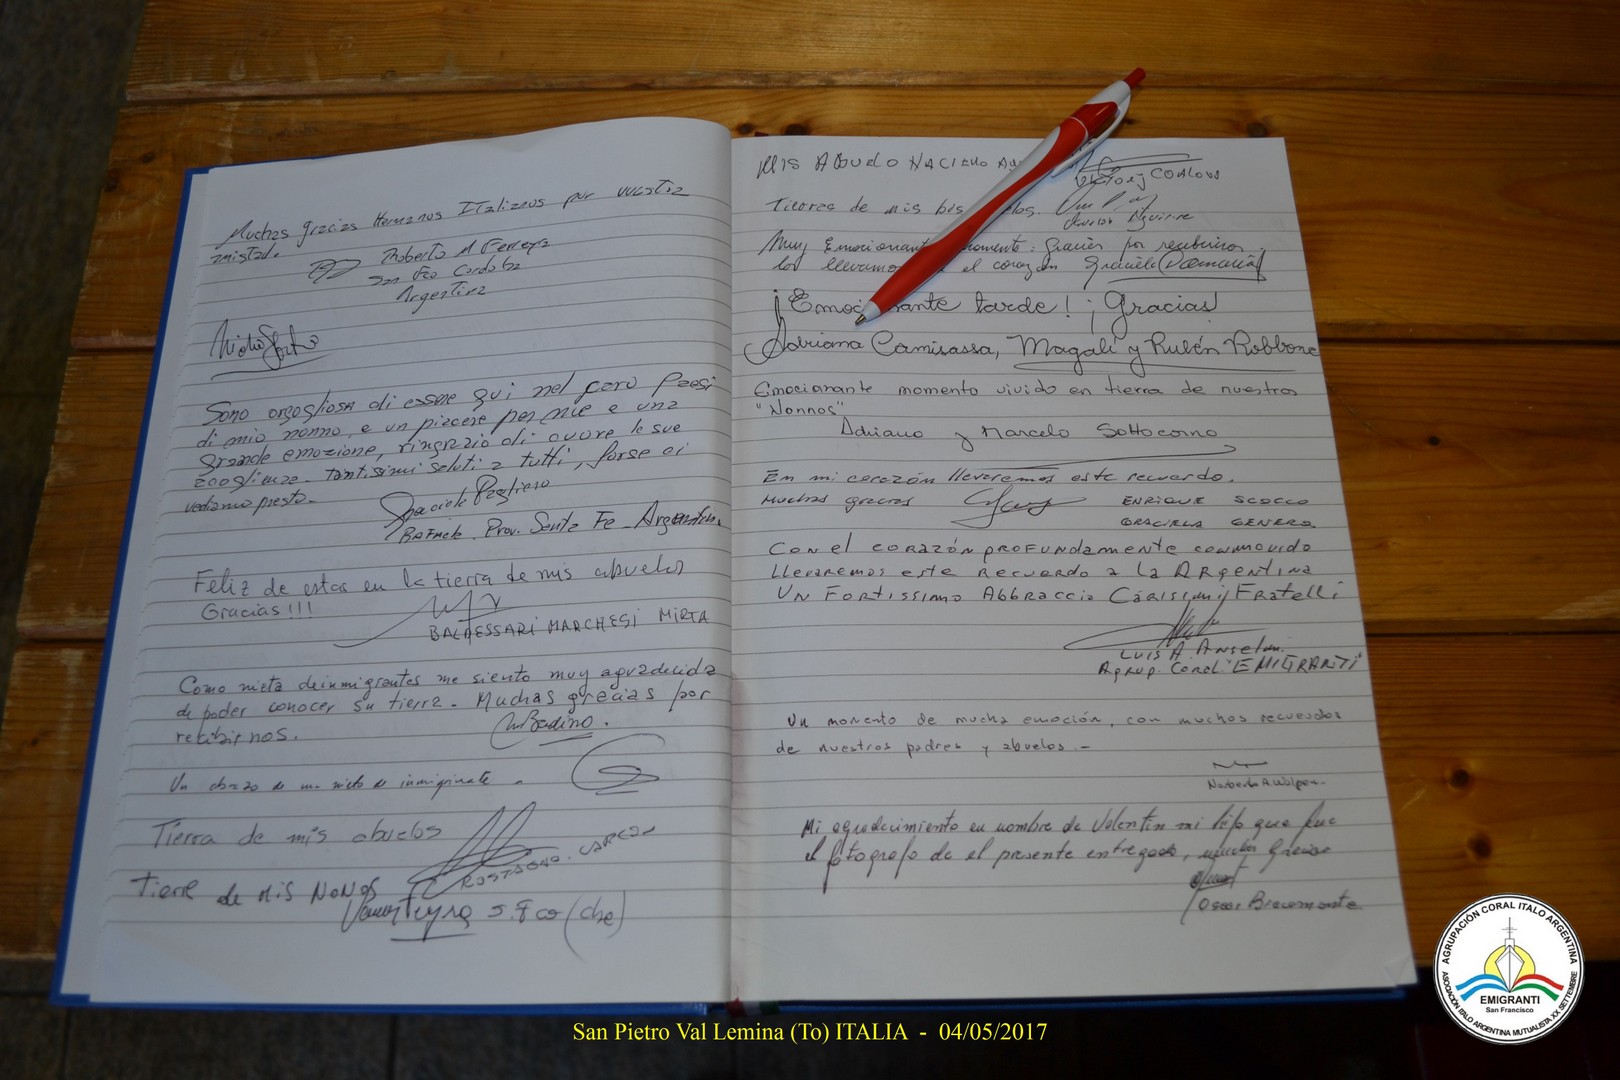 Muchas gracias Hermanos Italianos por vuestra
amistad.
Roberto A Ferreyra
San Fco Cordoba
Argentina
Sono orgogliosa di essere qui nel caro Paesi
di mio nonno, e un piacere per me e una
grande emozione, ringrazio di cuore le sue
accoglienze. Tantissimi saluti a tutti, forse ci
vediamo presto.
Graciela Pagliero
Rafaela. Prov. Santa Fe - Argentina.
Feliz de estar en la tierra de mis abuelos
Gracias!!!
BALDESSARI MARCHESI MIRTA
Como nieta de inmigrantes me siento muy agradecida
de poder conocer su tierra. Muchas gracias por
recibirnos. Badino.
Un abrazo de un nieto de inmigrante.
Tierra de mis abuelos
ROSTAGNO
Tierra de mis NONOS
S. Fco (Cba)
MIS ABUELO NACIERO
Tierras de mis
Muy Emocionante momento: Gracias por recibirnos
los llevamos el corazón Graciela
¡Emocionante tarde! ¡Gracias!
Adriana Camisassa, Magalí y Rubén Robbone
Emocionante momento vivido en tierra de nuestros
"Nonnos"
Adriano y Marcelo Sottocorno
En mi corazón llevaremos este recuerdo.
Muchas gracias ENRIQUE SCOCCO
GRACIELA GENERO
Con el corazón profundamente conmovido
llevaremos este recuerdo a la Argentina
Un Fortissimo Abbraccio Carissimi Fratelli
Luis A. Anselmi
Agrup. Coral "EMIGRANTI"
Un momento de mucha emoción, con muchos recuerdos
de nuestros padres y abuelos.-
Norberto A.
Mi agradecimiento en nombre de Valentin mi hijo que fue
el fotografo de el presente entregado, muchas gracias
Oscar Bracamonte
San Pietro Val Lemina (To) ITALIA - 04/05/2017
AGRUPACIÓN CORAL ITALO ARGENTINA
EMIGRANTI
San Francisco
ASOCIACIÓN ITALO ARGENTINA MUTUALISTA XX SETTEMBRE